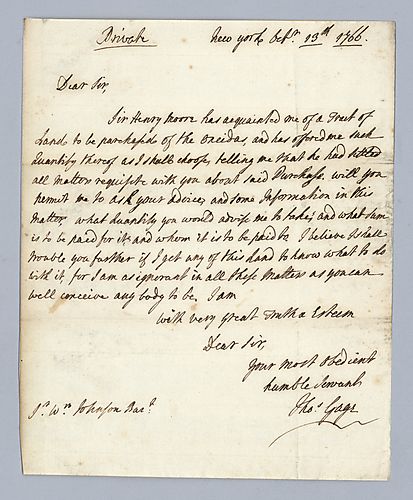 Private New york Octr. 13th 1766.
Dear Sir,
Sir Henry Moore has acquainted me of a Tract of
Land to be purchased of the Oneidas, and has offered me such
Quantity thereof as I shall choose, telling me that he had settled
all matters requisite with you about said Purchase, will you
permit me to ask your advice, and some Information in this
matter, what Quantity you would advise me to take, and what sum
is to be paid for it, and whom it is to be paid to. I believe I shall
trouble you further if I get any of this Land to know what to do
with it, for I am as ignorant in all these Matters as you can
well conceive any body to be. I am
with very great Truth & Esteem
Dear Sir,
Your most Obedient
humble Servant
Thos. Gage
Sr. Wm. Johnson Bart.